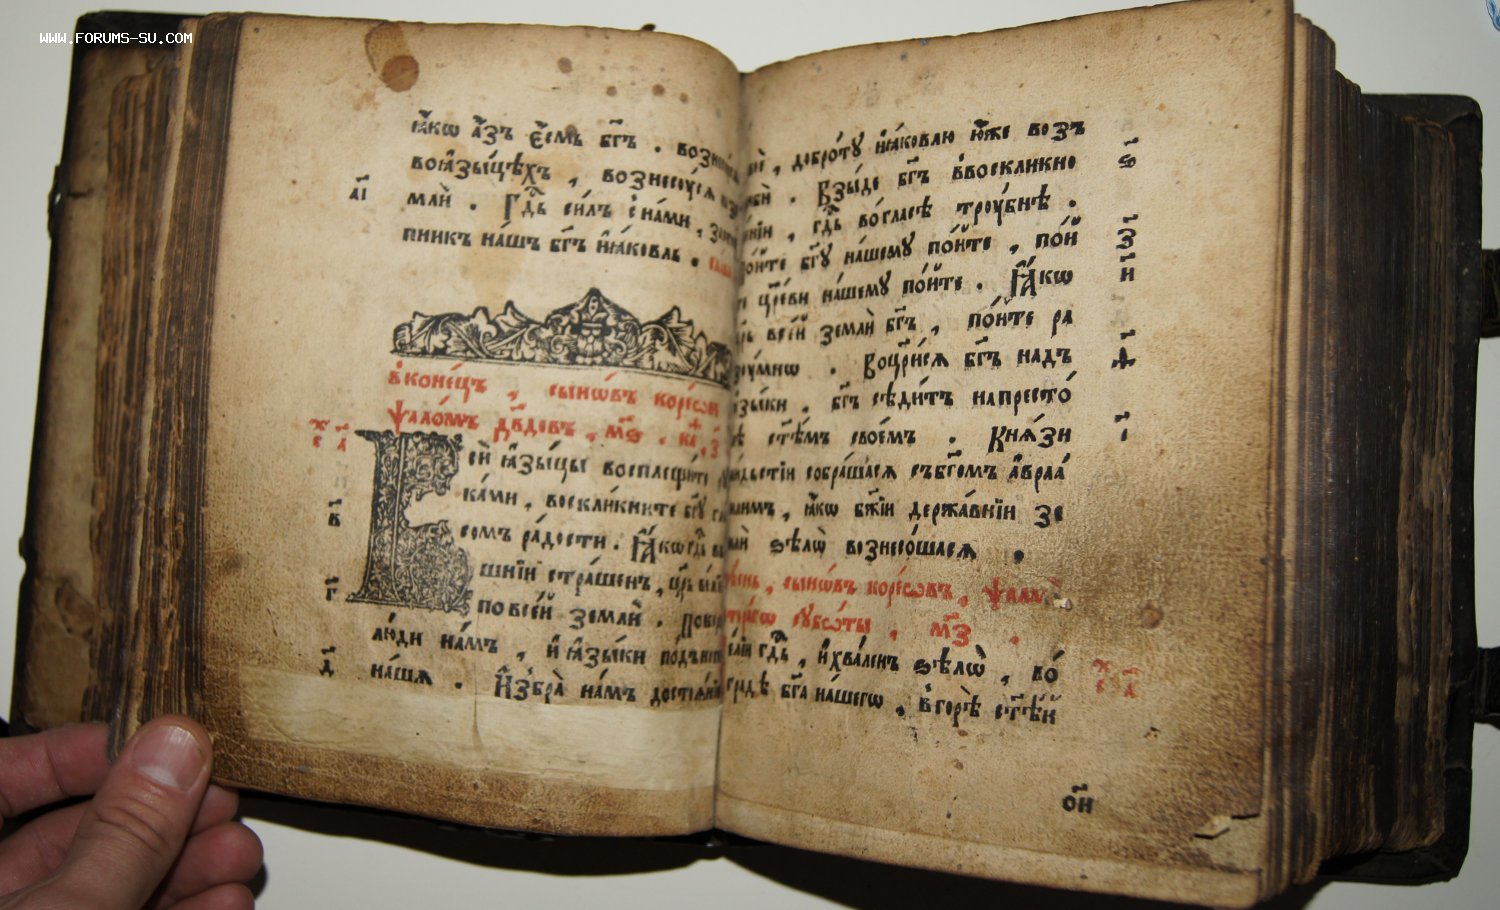 WWW.FORUMS-SU.COM
ꙗ҆́кѡ а҆́зъ є҆́смь бг҃ъ . вознес
воꙗ҆зы́цѣхъ , вознесꙋ́сѧ
а҃і
млѝ . Гд҇ь си́лъ с̾на́ми ,
пникъ на́шъ бг҃ъ і҆а́ковль . сла́ва
в̾коне́цъ , сыно́въ коре́ѡвъ
ѱало́мъ дв҃довъ , м҃ѕ .
В
сѝ ꙗ҆зы́цы восплещи́те
ка́ми , воскли́кните бг҃ꙋ
в҃
сомъ ра́дости . Ꙗ҆́кѡ гд҇ь
шні́и стра́шенъ , цр҃ь
г҃
по все́й землѝ .
лю́ди на́мъ , и҆ ꙗ҆зы́ки под̾
д҃
на́ша . И҆збра̀ на́мъ достоѧ́нїе
, добро́тꙋ і҆а́ковлю ю҆́же возъ
. Взы́де бг҃ъ в̾воскликно
ѕ҃
, гд҇ь во́гласѣ трꙋ́бнѣ .
по́йте бг҃ꙋ на́шемꙋ по́йте , по́й
з҃
те цр҃е́ви на́шемꙋ по́йте . Ꙗ҆́кѡ
и҃
всѐй землѝ бг҃ъ , по́йте ра
зꙋ́мнѡ . Воцр҃и́сѧ бг҃ъ надъ
ѳ҃
ꙗ҆зы́ки . бг҃ъ сѣди́тъ напресто́
лѣ ст҃ѣ́мъ свое́мъ . Кня́зи
і҃
лю́дьстїи собра́шасѧ събг҃омъ а҆враа́
млимъ , ꙗ҆́кѡ бж҃їи держа́внїи зе
млѝ ѕѣлѡ̀ вознесо́шасѧ .
, сыно́въ коре́ѡвъ , ѱало́
сꙋбѡ́ты , м҃з .
ве́лїи гд҇ь , и҆хва́ленъ ѕѣлѡ̀ , во́
градѣ бг҃а на́шегѡ , в̾горѣ̀ ст҃ѣ́й
о҃и